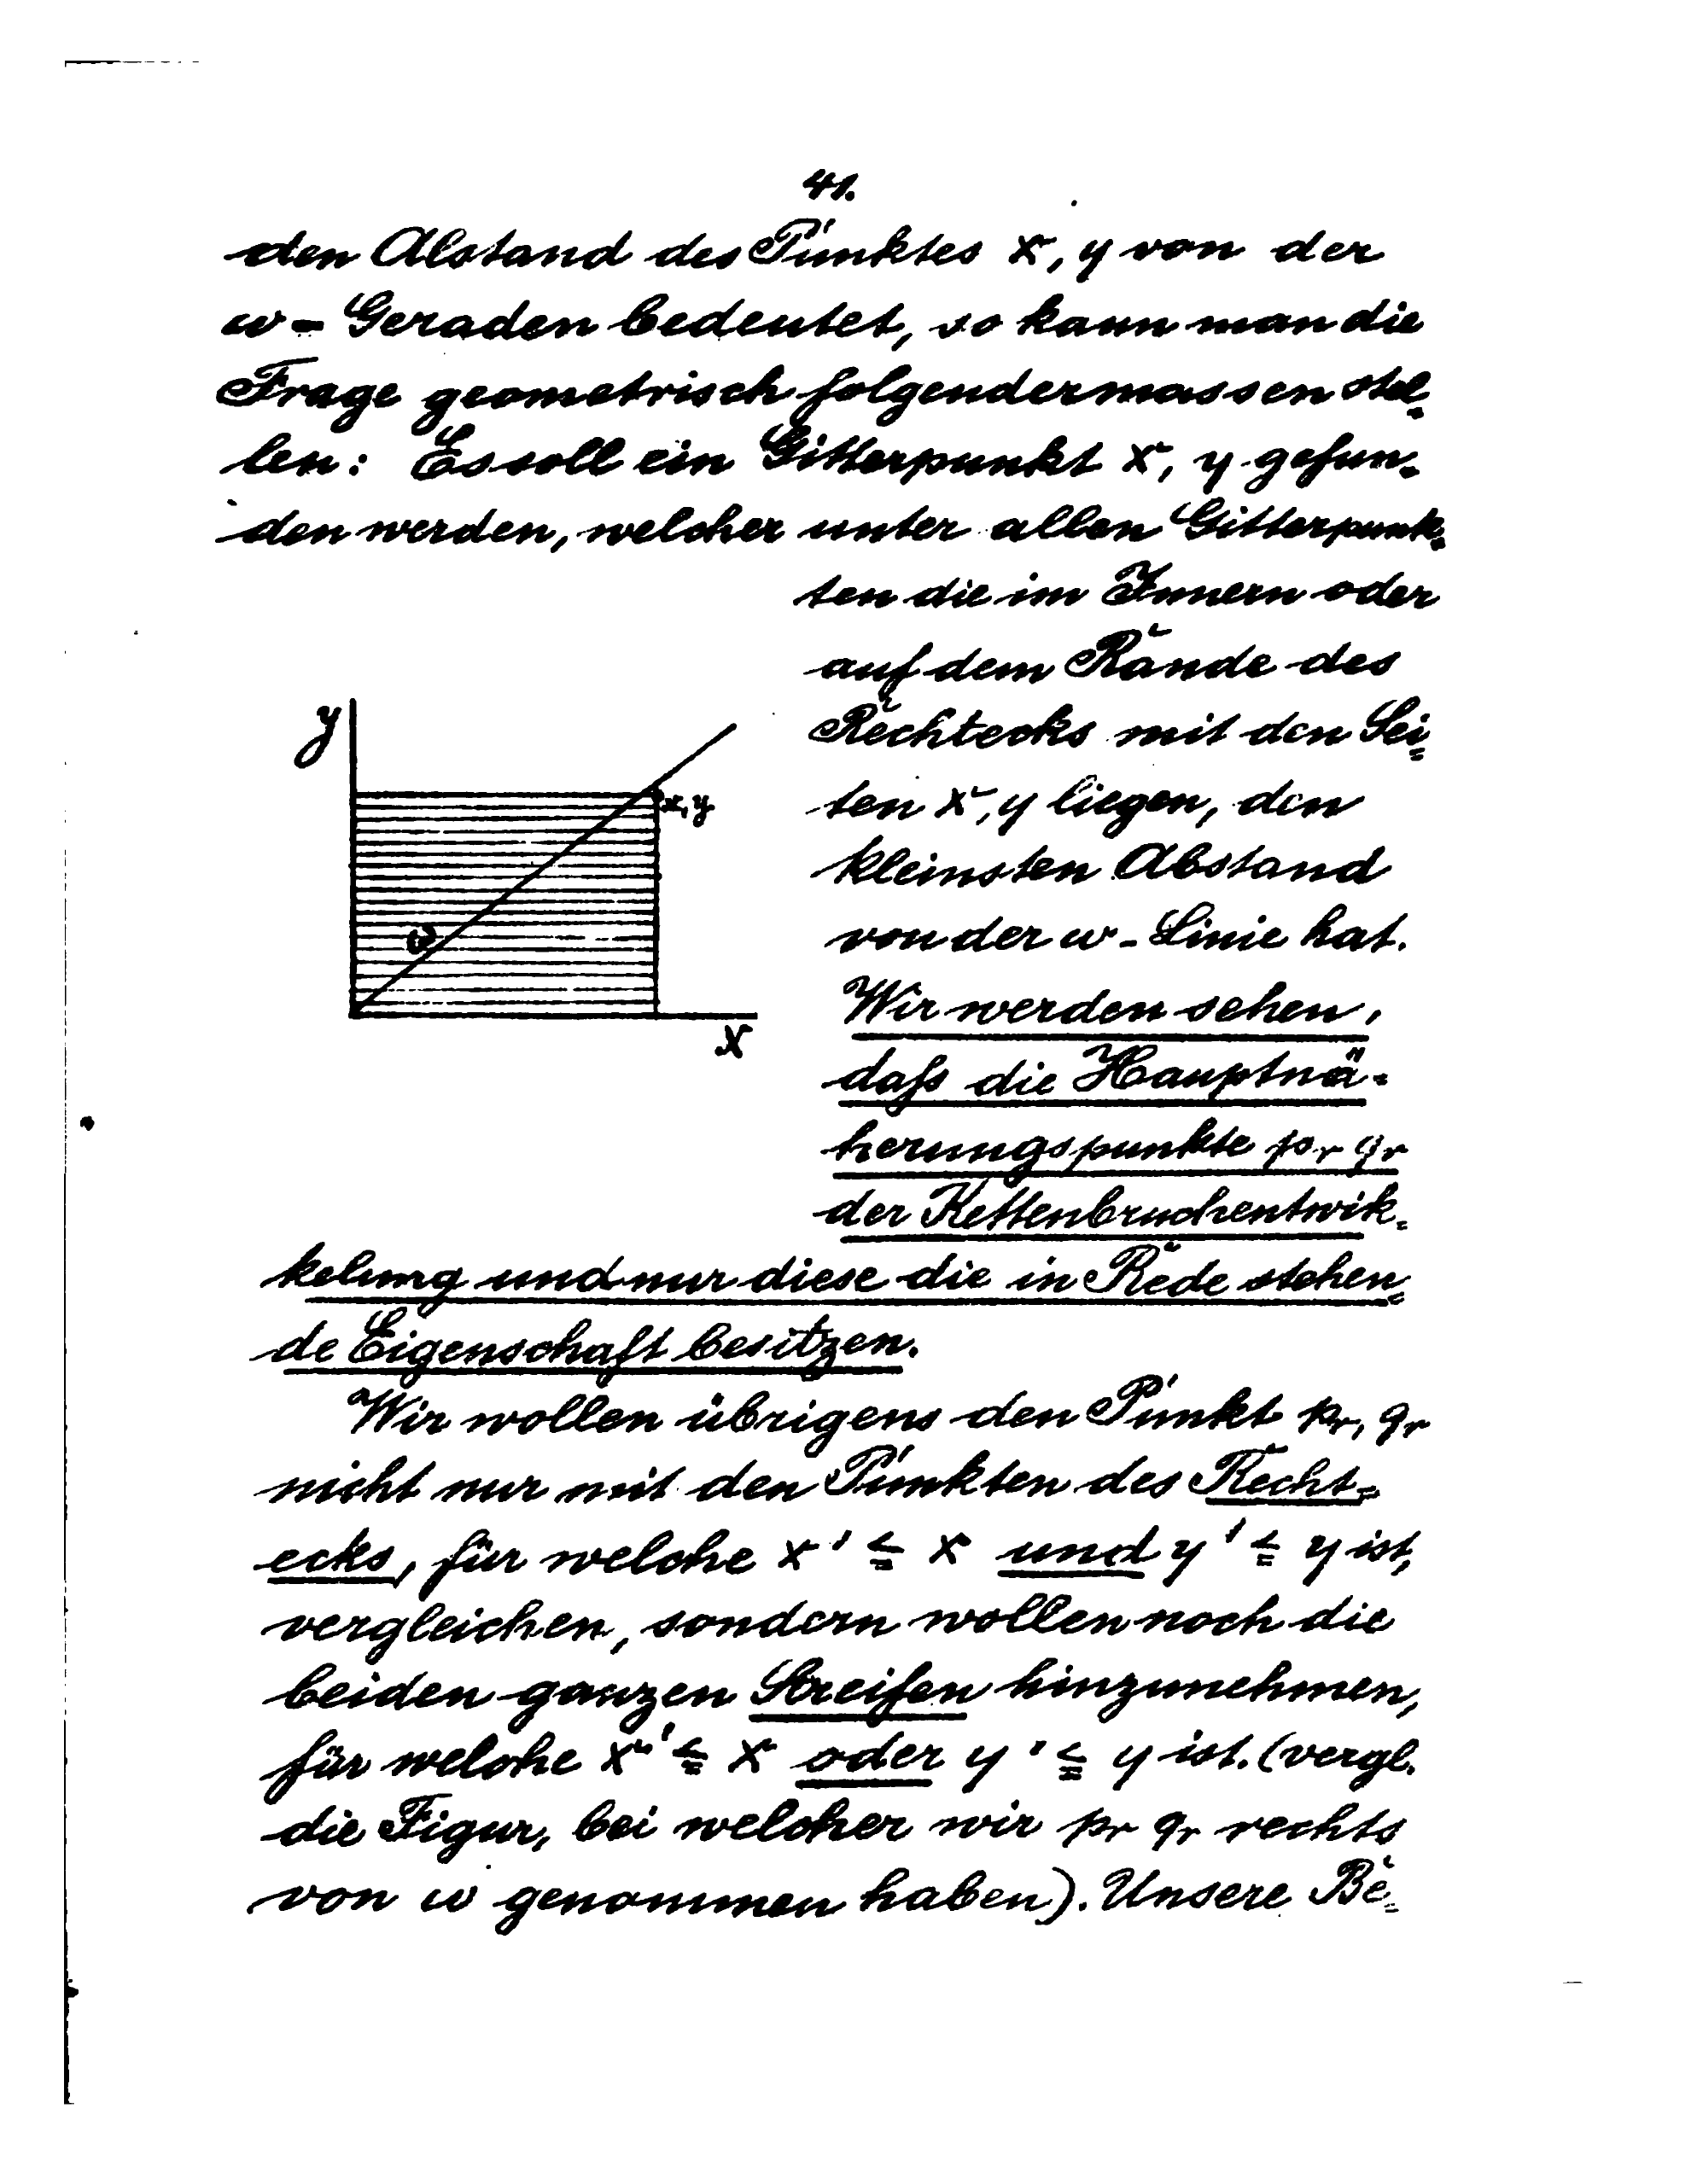 41.
den Abstand des Punktes x, y von der
ω-Geraden bedeutet, so kann man die
Frage geometrisch folgendermassen stel=
len: Es soll ein Gitterpunkt x, y gefun=
den werden, welcher unter allen Gitterpunk=
ten die im Innern oder
auf dem Rande des
Rechtecks mit den Sei=
ten x, y liegen, den
kleinsten Abstand
von der ω-Linie hat.
Wir werden sehen,
daß die Hauptnä=
herungspunkte pr qr
der Kettenbruchentwik=
kelung und nur diese die in Rede stehen=
de Eigenschaft besitzen.
y
x, y
ω
x
Wir wollen übrigens den Punkt pr, qr
nicht nur mit den Punkten des Recht=
ecks, für welche x' ≦ x und y' ≦ y ist,
vergleichen, sondern wollen noch die
beiden ganzen Streifen hinzunehmen,
für welche x' ≦ x oder y' ≦ y ist. (vergl.
die Figur, bei welcher wir pr qr rechts
von ω genommen haben). Unsere Be=